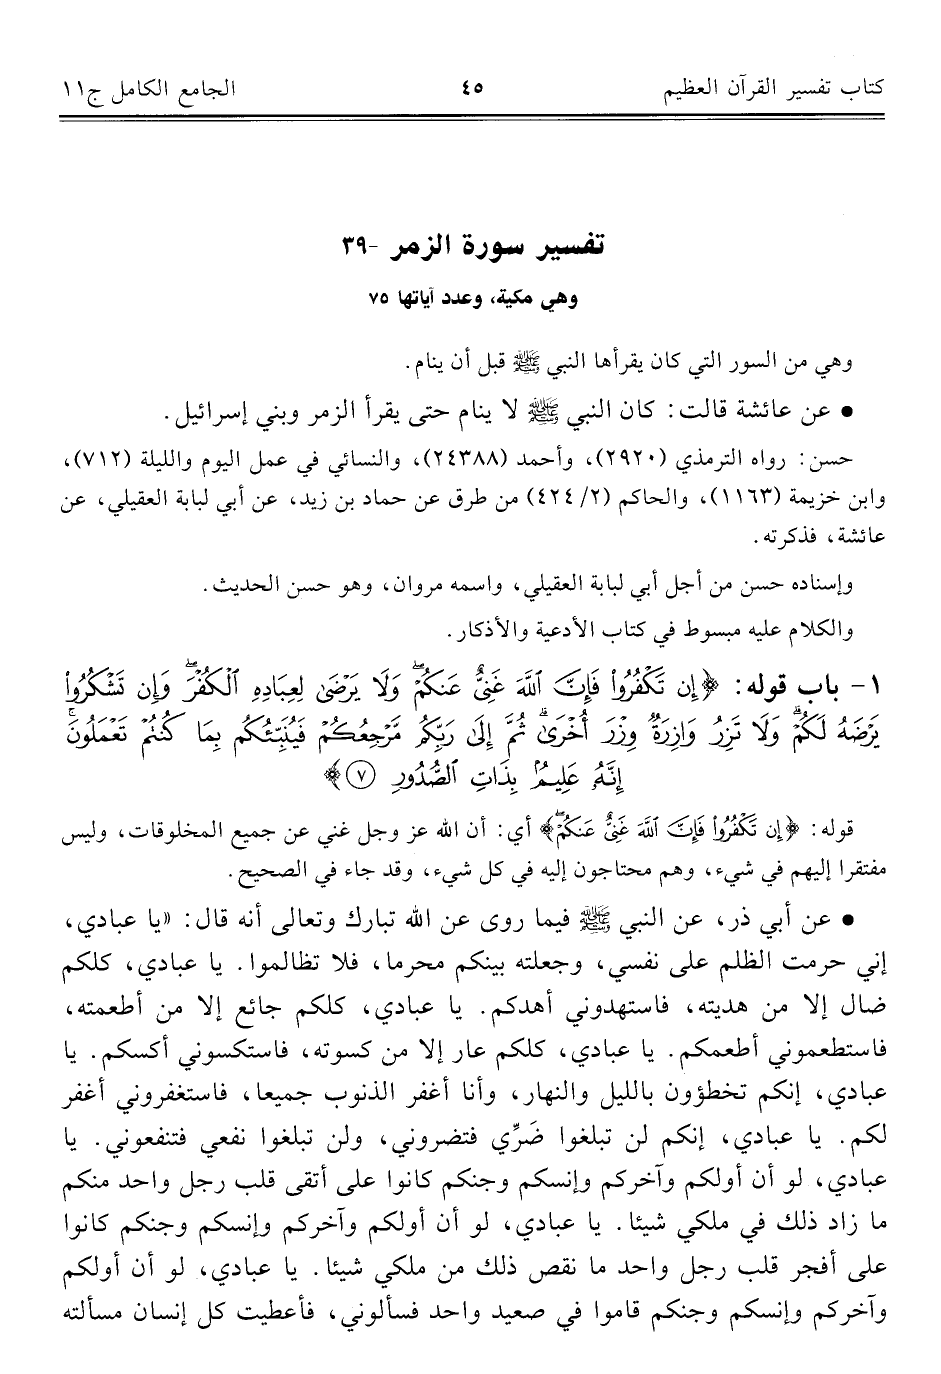 كتاب تفسير القرآن العظيم ٤٥ الجامع الكامل ج١١
تفسير سورة الزمر -٣٩
وهي مكية، وعدد آياتها ٧٥
وهي من السور التي كان يقرأها النبي ﷺ قبل أن ينام.
• عن عائشة قالت: كان النبي ﷺ لا ينام حتى يقرأ الزمر وبني إسرائيل.
حسن: رواه الترمذي (٢٩٢٠)، وأحمد (٢٤٣٨٨)، والنسائي في عمل اليوم والليلة (٧١٢)،
وابن خزيمة (١١٦٣)، والحاكم (٢/ ٤٢٤) من طرق عن حماد بن زيد، عن أبي لبابة العقيلي، عن
عائشة، فذكرته.
وإسناده حسن من أجل أبي لبابة العقيلي، واسمه مروان، وهو حسن الحديث.
والكلام عليه مبسوط في كتاب الأدعية والأذكار.
١- باب قوله: ﴿إِن تَكْفُرُوا۟ فَإِنَّ ٱللَّهَ غَنِىٌّ عَنكُمْ ۖ وَلَا يَرْضَىٰ لِعِبَادِهِ ٱلْكُفْرَ ۖ وَإِن تَشْكُرُوا۟
يَرْضَهُ لَكُمْ ۗ وَلَا تَزِرُ وَازِرَةٌ وِزْرَ أُخْرَىٰ ۗ ثُمَّ إِلَىٰ رَبِّكُم مَّرْجِعُكُمْ فَيُنَبِّئُكُم بِمَا كُنتُمْ تَعْمَلُونَ ۚ
إِنَّهُۥ عَلِيمٌۢ بِذَاتِ ٱلصُّدُورِ ⑦﴾
قوله: ﴿إِن تَكْفُرُوا۟ فَإِنَّ ٱللَّهَ غَنِىٌّ عَنكُمْ ۖ﴾ أي: أن الله عز وجل غني عن جميع المخلوقات، وليس
مفتقرا إليهم في شيء، وهم محتاجون إليه في كل شيء، وقد جاء في الصحيح.
• عن أبي ذر، عن النبي ﷺ فيما روى عن الله تبارك وتعالى أنه قال: «يا عبادي،
إني حرمت الظلم على نفسي، وجعلته بينكم محرما، فلا تظالموا. يا عبادي، كلكم
ضال إلا من هديته، فاستهدوني أهدكم. يا عبادي، كلكم جائع إلا من أطعمته،
فاستطعموني أطعمكم. يا عبادي، كلكم عار إلا من كسوته، فاستكسوني أكسكم. يا
عبادي، إنكم تخطؤون بالليل والنهار، وأنا أغفر الذنوب جميعا، فاستغفروني أغفر
لكم. يا عبادي، إنكم لن تبلغوا ضَرِّي فتضروني، ولن تبلغوا نفعي فتنفعوني. يا
عبادي، لو أن أولكم وآخركم وإنسكم وجنكم كانوا على أتقى قلب رجل واحد منكم
ما زاد ذلك في ملكي شيئا. يا عبادي، لو أن أولكم وآخركم وإنسكم وجنكم كانوا
على أفجر قلب رجل واحد ما نقص ذلك من ملكي شيئا. يا عبادي، لو أن أولكم
وآخركم وإنسكم وجنكم قاموا في صعيد واحد فسألوني، فأعطيت كل إنسان مسألته